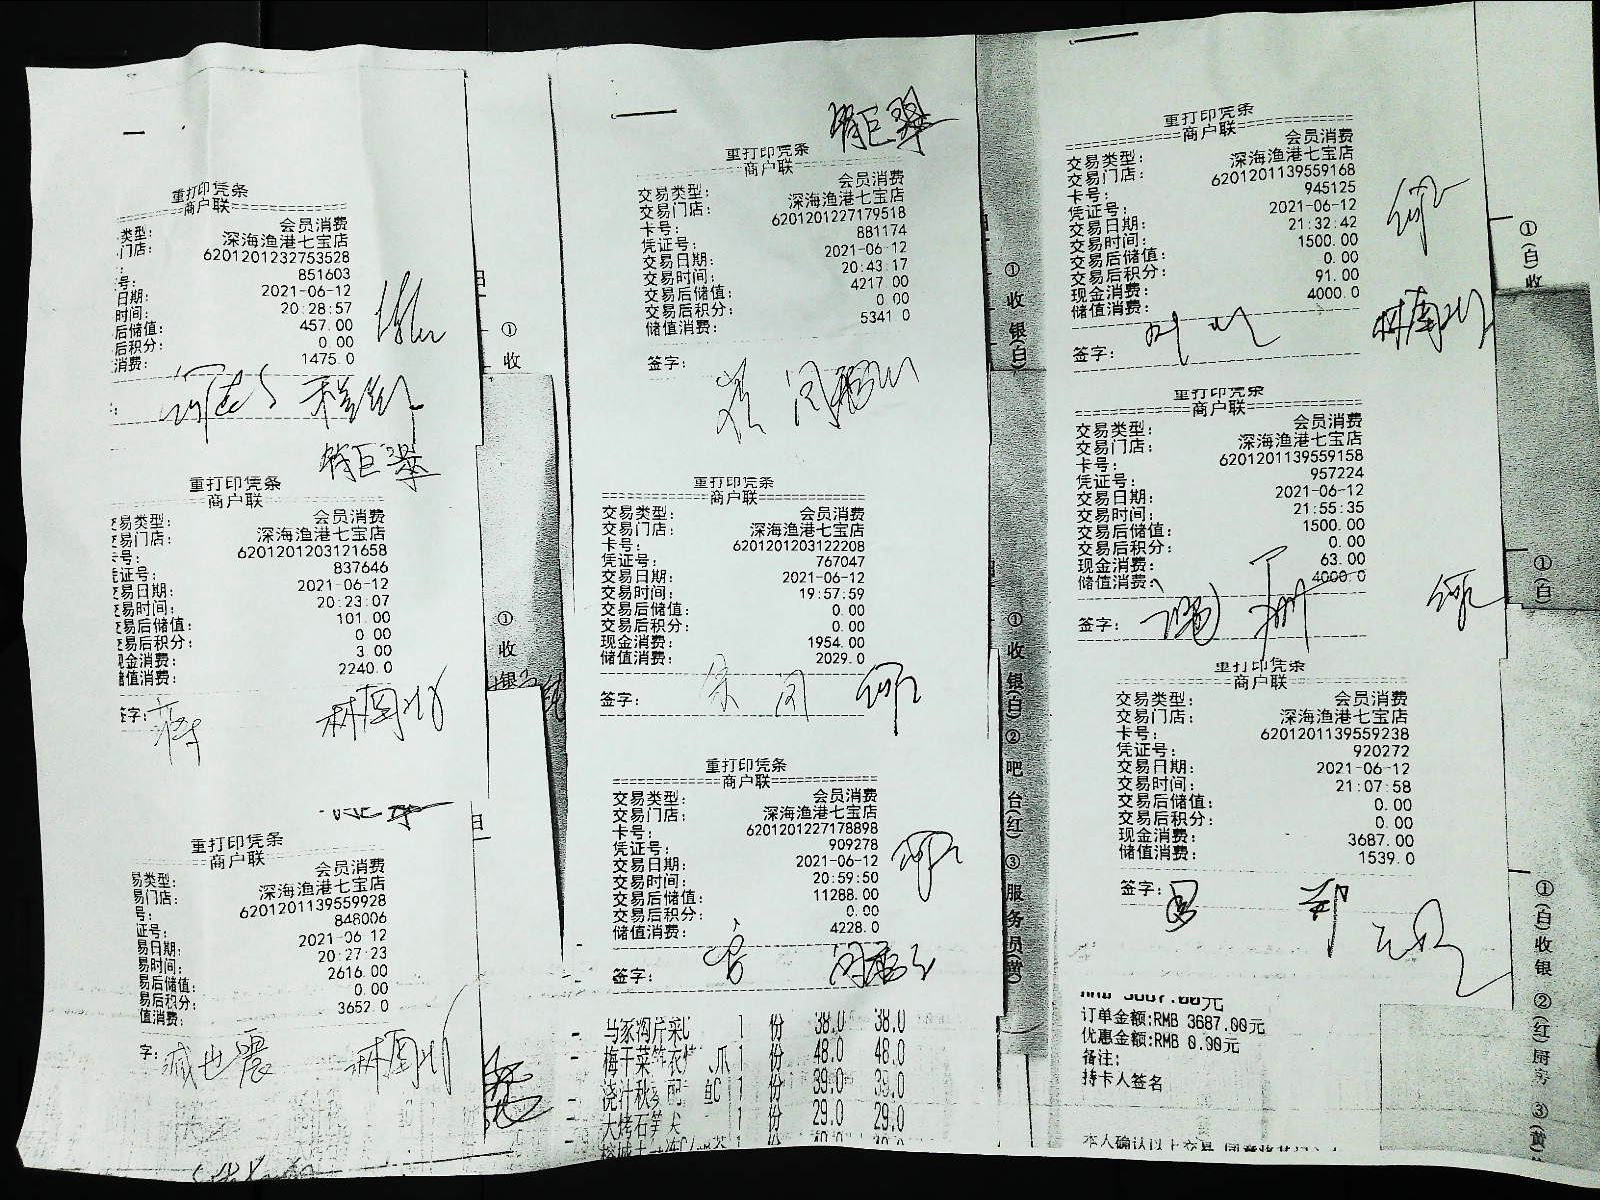 重打印凭条
商户联
类型: 会员消费
门店: 深海渔港七宝店
: 6201201232753528
号: 851603
日期: 2021-06-12
时间: 20:28:57
后储值: 457.00
后积分: 0.00
消费: 1475.0
重打印凭条
商户联
易类型: 会员消费
易门店: 深海渔港七宝店
号: 6201201203121658
证号: 837646
易日期: 2021-06-12
易时间: 20:23:07
易后储值: 101.00
易后积分: 0.00
金消费: 3.00
值消费: 2240.0
签字: 蒋 林南川
重打印凭条
商户联
易类型: 会员消费
易门店: 深海渔港七宝店
号: 6201201139559928
证号: 848006
易日期: 2021-06-12
易时间: 20:27:23
易后储值: 2616.00
易后积分: 0.00
值消费: 3652.0
字: 臧也震 林南川
重打印凭条
商户联
交易类型: 会员消费
交易门店: 深海渔港七宝店
卡号: 6201201227179518
凭证号: 881174
交易日期: 2021-06-12
交易时间: 20:43:17
交易后储值: 4217.00
交易后积分: 0.00
储值消费: 5341.0
签字:
重打印凭条
商户联
交易类型: 会员消费
交易门店: 深海渔港七宝店
卡号: 6201201203122208
凭证号: 767047
交易日期: 2021-06-12
交易时间: 19:57:59
交易后储值: 0.00
交易后积分: 0.00
现金消费: 1954.00
储值消费: 2029.0
签字:
重打印凭条
商户联
交易类型: 会员消费
交易门店: 深海渔港七宝店
卡号: 6201201227178898
凭证号: 909278
交易日期: 2021-06-12
交易时间: 20:59:50
交易后储值: 11288.00
交易后积分: 0.00
储值消费: 4228.0
签字:
马家沟芹菜C 1 份 38.0 38.0
梅干菜 1 份 48.0 48.0
浇汁秋 配 鱼C 1 份 39.0 39.0
大烤石笋 1 份 29.0 29.0
重打印凭条
商户联
交易类型: 会员消费
交易门店: 深海渔港七宝店
卡号: 6201201139559168
凭证号: 945125
交易日期: 2021-06-12
交易时间: 21:32:42
交易后储值: 1500.00
交易后积分: 0.00
现金消费: 91.00
储值消费: 4000.0
林南川
签字:
重打印凭条
商户联
交易类型: 会员消费
交易门店: 深海渔港七宝店
卡号: 6201201139559158
凭证号: 957224
交易日期: 2021-06-12
交易时间: 21:55:35
交易后储值: 1500.00
交易后积分: 0.00
现金消费: 63.00
储值消费: 4000.0
签字:
重打印凭条
商户联
交易类型: 会员消费
交易门店: 深海渔港七宝店
卡号: 6201201139559238
凭证号: 920272
交易日期: 2021-06-12
交易时间: 21:07:58
交易后储值: 0.00
交易后积分: 0.00
现金消费: 3687.00
储值消费: 1539.0
签字:
RMB 3687.00元
订单金额:RMB 3687.00元
优惠金额:RMB 0.00元
备注:
持卡人签名
本人确认以上交易
①收
①收银
①收银(白)
①收银(白)②吧台(红)③服务员(黄)
①(白)收
①(白)
①(白)收银②(红)厨房③(黄)